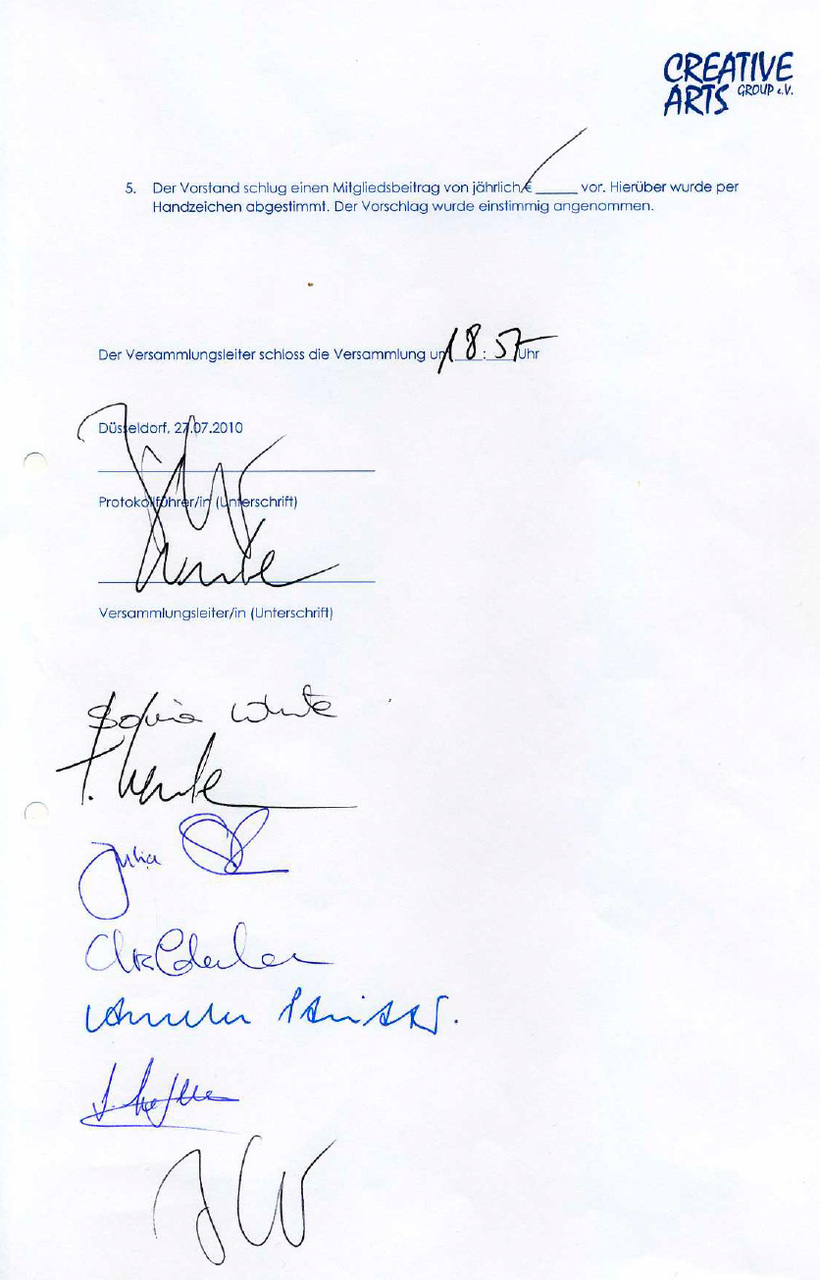 CREATIVE
ARTS GROUP e.V.
5. Der Vorstand schlug einen Mitgliedsbeitrag von jährlich € _____ vor. Hierüber wurde per
Handzeichen abgestimmt. Der Vorschlag wurde einstimmig angenommen.
Der Versammlungsleiter schloss die Versammlung um 18:57 Uhr
Düsseldorf, 27.07.2010
Protokollführer/in (Unterschrift)
Versammlungsleiter/in (Unterschrift)
Julia